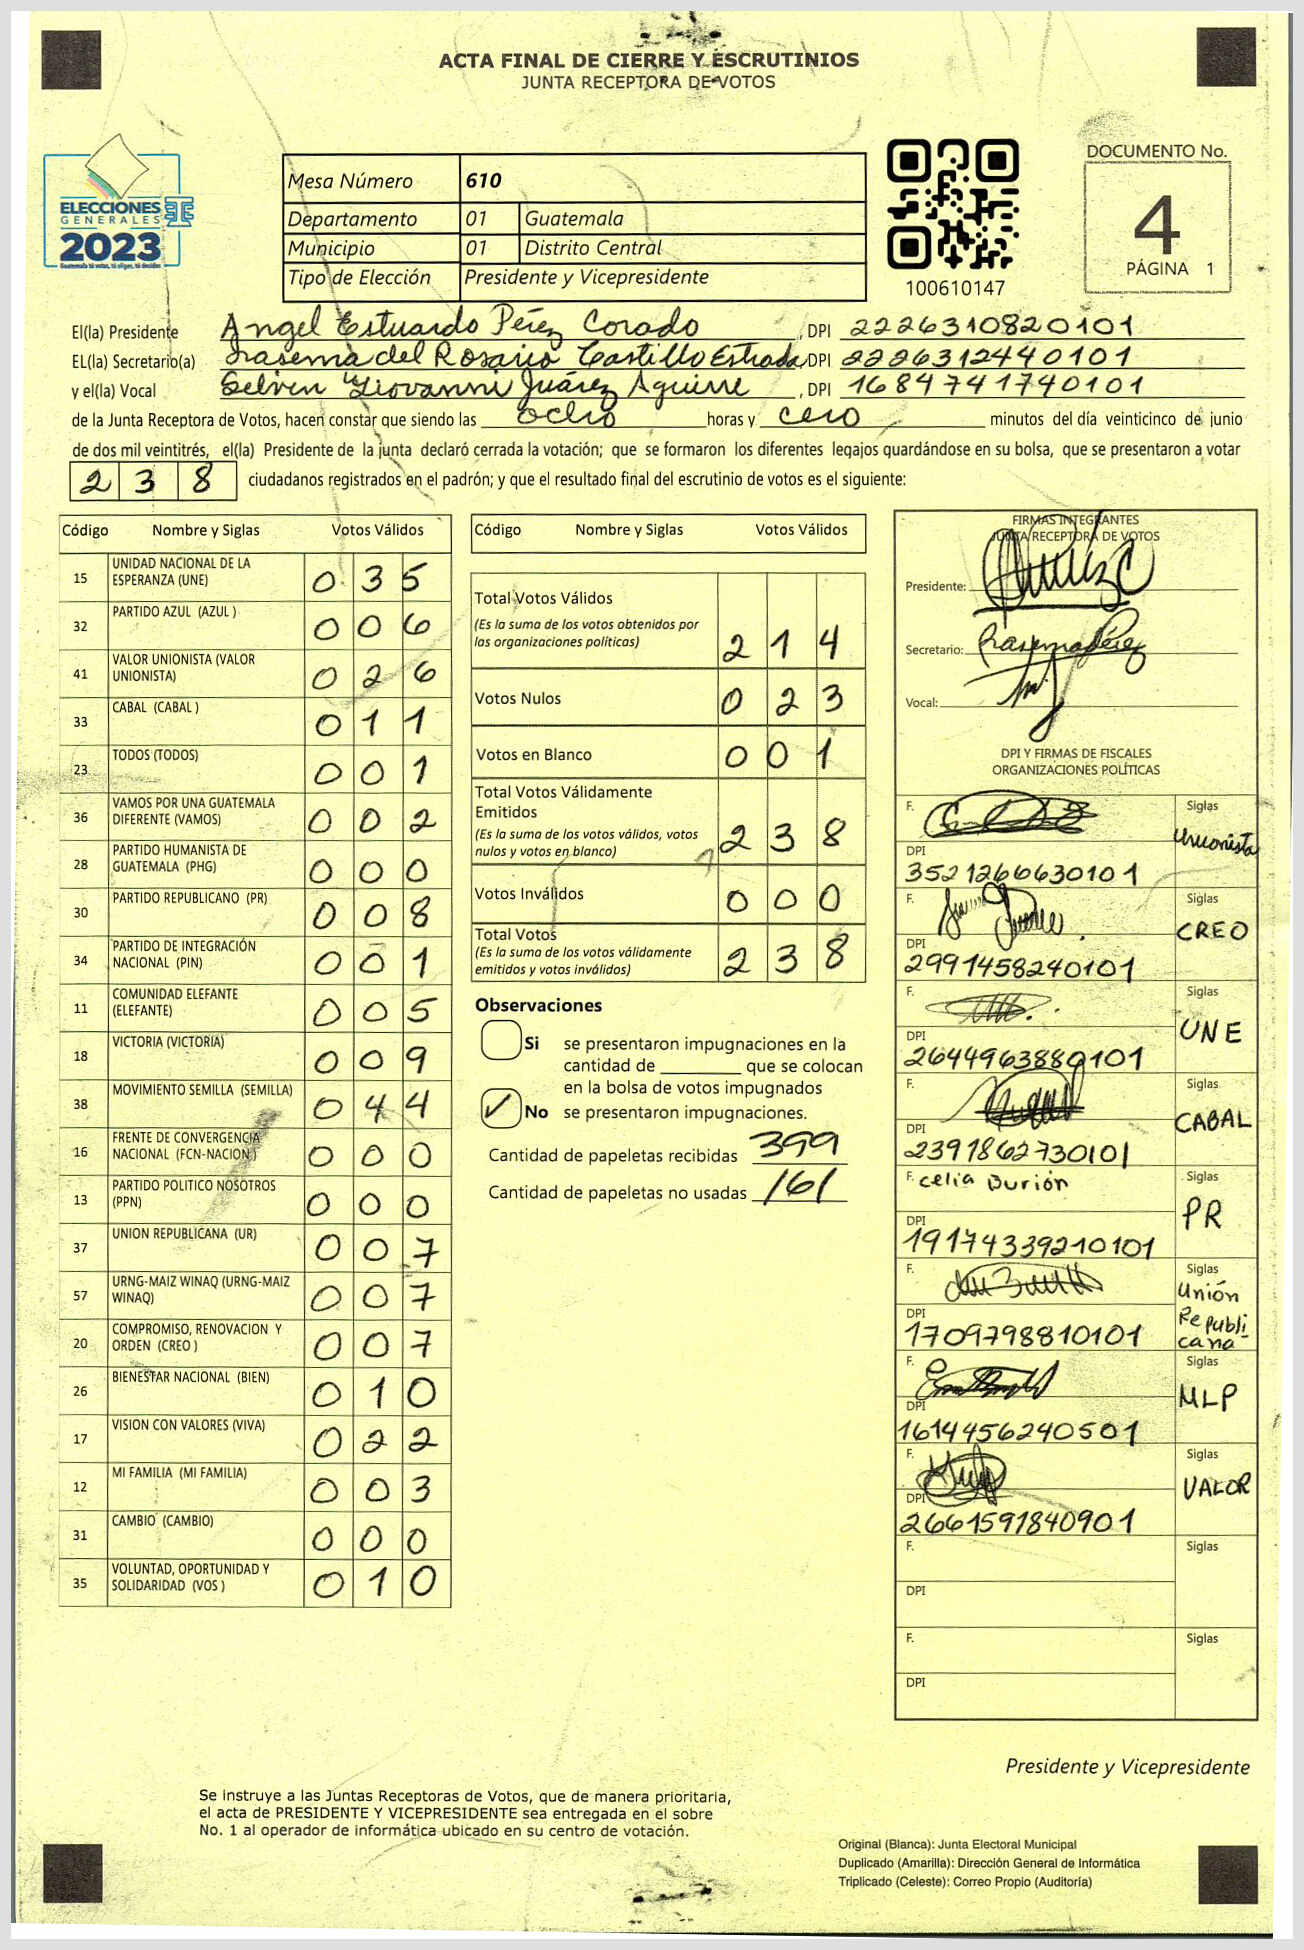 ACTA FINAL DE CIERRE Y ESCRUTINIOS
JUNTA RECEPTORA DE VOTOS
ELECCIONES
GENERALES
2023
Guatemala tú votas, tú eliges, tú decides
Mesa Número 610
Departamento 01 Guatemala
Municipio 01 Distrito Central
Tipo de Elección Presidente y Vicepresidente
100610147
DOCUMENTO No.
4
PÁGINA 1
El(la) Presidente Angel Estuardo Pérez Corado, DPI 2226310820101
EL(la) Secretario(a) Irasema del Rosario Castillo Estrada, DPI 2226312440101
y el(la) Vocal Selvin Giovanni Juárez Aguirre, DPI 1684741740101
de la Junta Receptora de Votos, hacen constar que siendo las ocho horas y cero minutos del día veinticinco de junio
de dos mil veintitrés, el(la) Presidente de la junta declaró cerrada la votación; que se formaron los diferentes legajos guardándose en su bolsa, que se presentaron a votar
238 ciudadanos registrados en el padrón; y que el resultado final del escrutinio de votos es el siguiente:
Código Nombre y Siglas Votos Válidos
15 UNIDAD NACIONAL DE LA ESPERANZA (UNE) 035
32 PARTIDO AZUL (AZUL ) 006
41 VALOR UNIONISTA (VALOR UNIONISTA) 026
33 CABAL (CABAL ) 011
23 TODOS (TODOS) 001
36 VAMOS POR UNA GUATEMALA DIFERENTE (VAMOS) 002
28 PARTIDO HUMANISTA DE GUATEMALA (PHG) 000
30 PARTIDO REPUBLICANO (PR) 008
34 PARTIDO DE INTEGRACIÓN NACIONAL (PIN) 001
11 COMUNIDAD ELEFANTE (ELEFANTE) 005
18 VICTORIA (VICTORIA) 009
38 MOVIMIENTO SEMILLA (SEMILLA) 044
16 FRENTE DE CONVERGENCIA NACIONAL (FCN-NACION ) 000
13 PARTIDO POLITICO NOSOTROS (PPN) 000
37 UNION REPUBLICANA (UR) 007
57 URNG-MAIZ WINAQ (URNG-MAIZ WINAQ) 007
20 COMPROMISO, RENOVACION Y ORDEN (CREO ) 007
26 BIENESTAR NACIONAL (BIEN) 010
17 VISION CON VALORES (VIVA) 022
12 MI FAMILIA (MI FAMILIA) 003
31 CAMBIO (CAMBIO) 000
35 VOLUNTAD, OPORTUNIDAD Y SOLIDARIDAD (VOS ) 010
Código Nombre y Siglas Votos Válidos
Total Votos Válidos
(Es la suma de los votos obtenidos por
las organizaciones políticas) 214
Votos Nulos 023
Votos en Blanco 001
Total Votos Válidamente
Emitidos
(Es la suma de los votos válidos, votos
nulos y votos en blanco) 238
Votos Inválidos 000
Total Votos
(Es la suma de los votos válidamente
emitidos y votos inválidos) 238
Observaciones
Si se presentaron impugnaciones en la
cantidad de ________ que se colocan
en la bolsa de votos impugnados
✓ No se presentaron impugnaciones.
Cantidad de papeletas recibidas 399
Cantidad de papeletas no usadas 161
FIRMAS INTEGRANTES
JUNTA RECEPTORA DE VOTOS
Presidente:
Secretario:
Vocal:
DPI Y FIRMAS DE FISCALES
ORGANIZACIONES POLÍTICAS
F. Siglas Unionista
DPI 3521266630101
F. Siglas CREO
DPI 2991458240101
F. Siglas UNE
DPI 2644963880101
F. Siglas CABAL
DPI 2391862730101
F. Celia Burión Siglas PR
DPI 1917433921 0101
F. Siglas Unión Republicana
DPI 1709798810101
F. Siglas MLP
DPI 1614456240501
F. Siglas VALOR
DPI 2661591840901
F. Siglas
DPI
F. Siglas
DPI
Presidente y Vicepresidente
Se instruye a las Juntas Receptoras de Votos, que de manera prioritaria,
el acta de PRESIDENTE Y VICEPRESIDENTE sea entregada en el sobre
No. 1 al operador de informática ubicado en su centro de votación.
Original (Blanca): Junta Electoral Municipal
Duplicado (Amarilla): Dirección General de Informática
Triplicado (Celeste): Correo Propio (Auditoría)